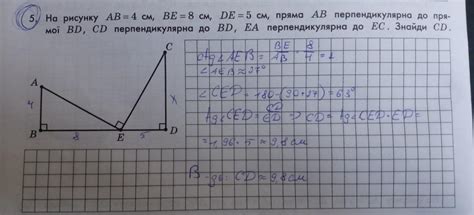 5. На рисунку AB = 4 см, BE = 8 см, DE = 5 см, пряма AB перпендикулярна до пря-
мої BD, CD перпендикулярна до BD, EA перпендикулярна до EC. Знайди CD.
C
A
4
x
B
8
E
5
D
tg∠AEB = BE/AB = 8/4 = 2
∠AEB ≈ 27°
∠CED = 180-(90+27) = 63°
tg∠CED = CD/ED => CD = tg∠CED·ED =
= 1,96·5 ≈ 9,8 см
В-дь: CD ≈ 9,8 см